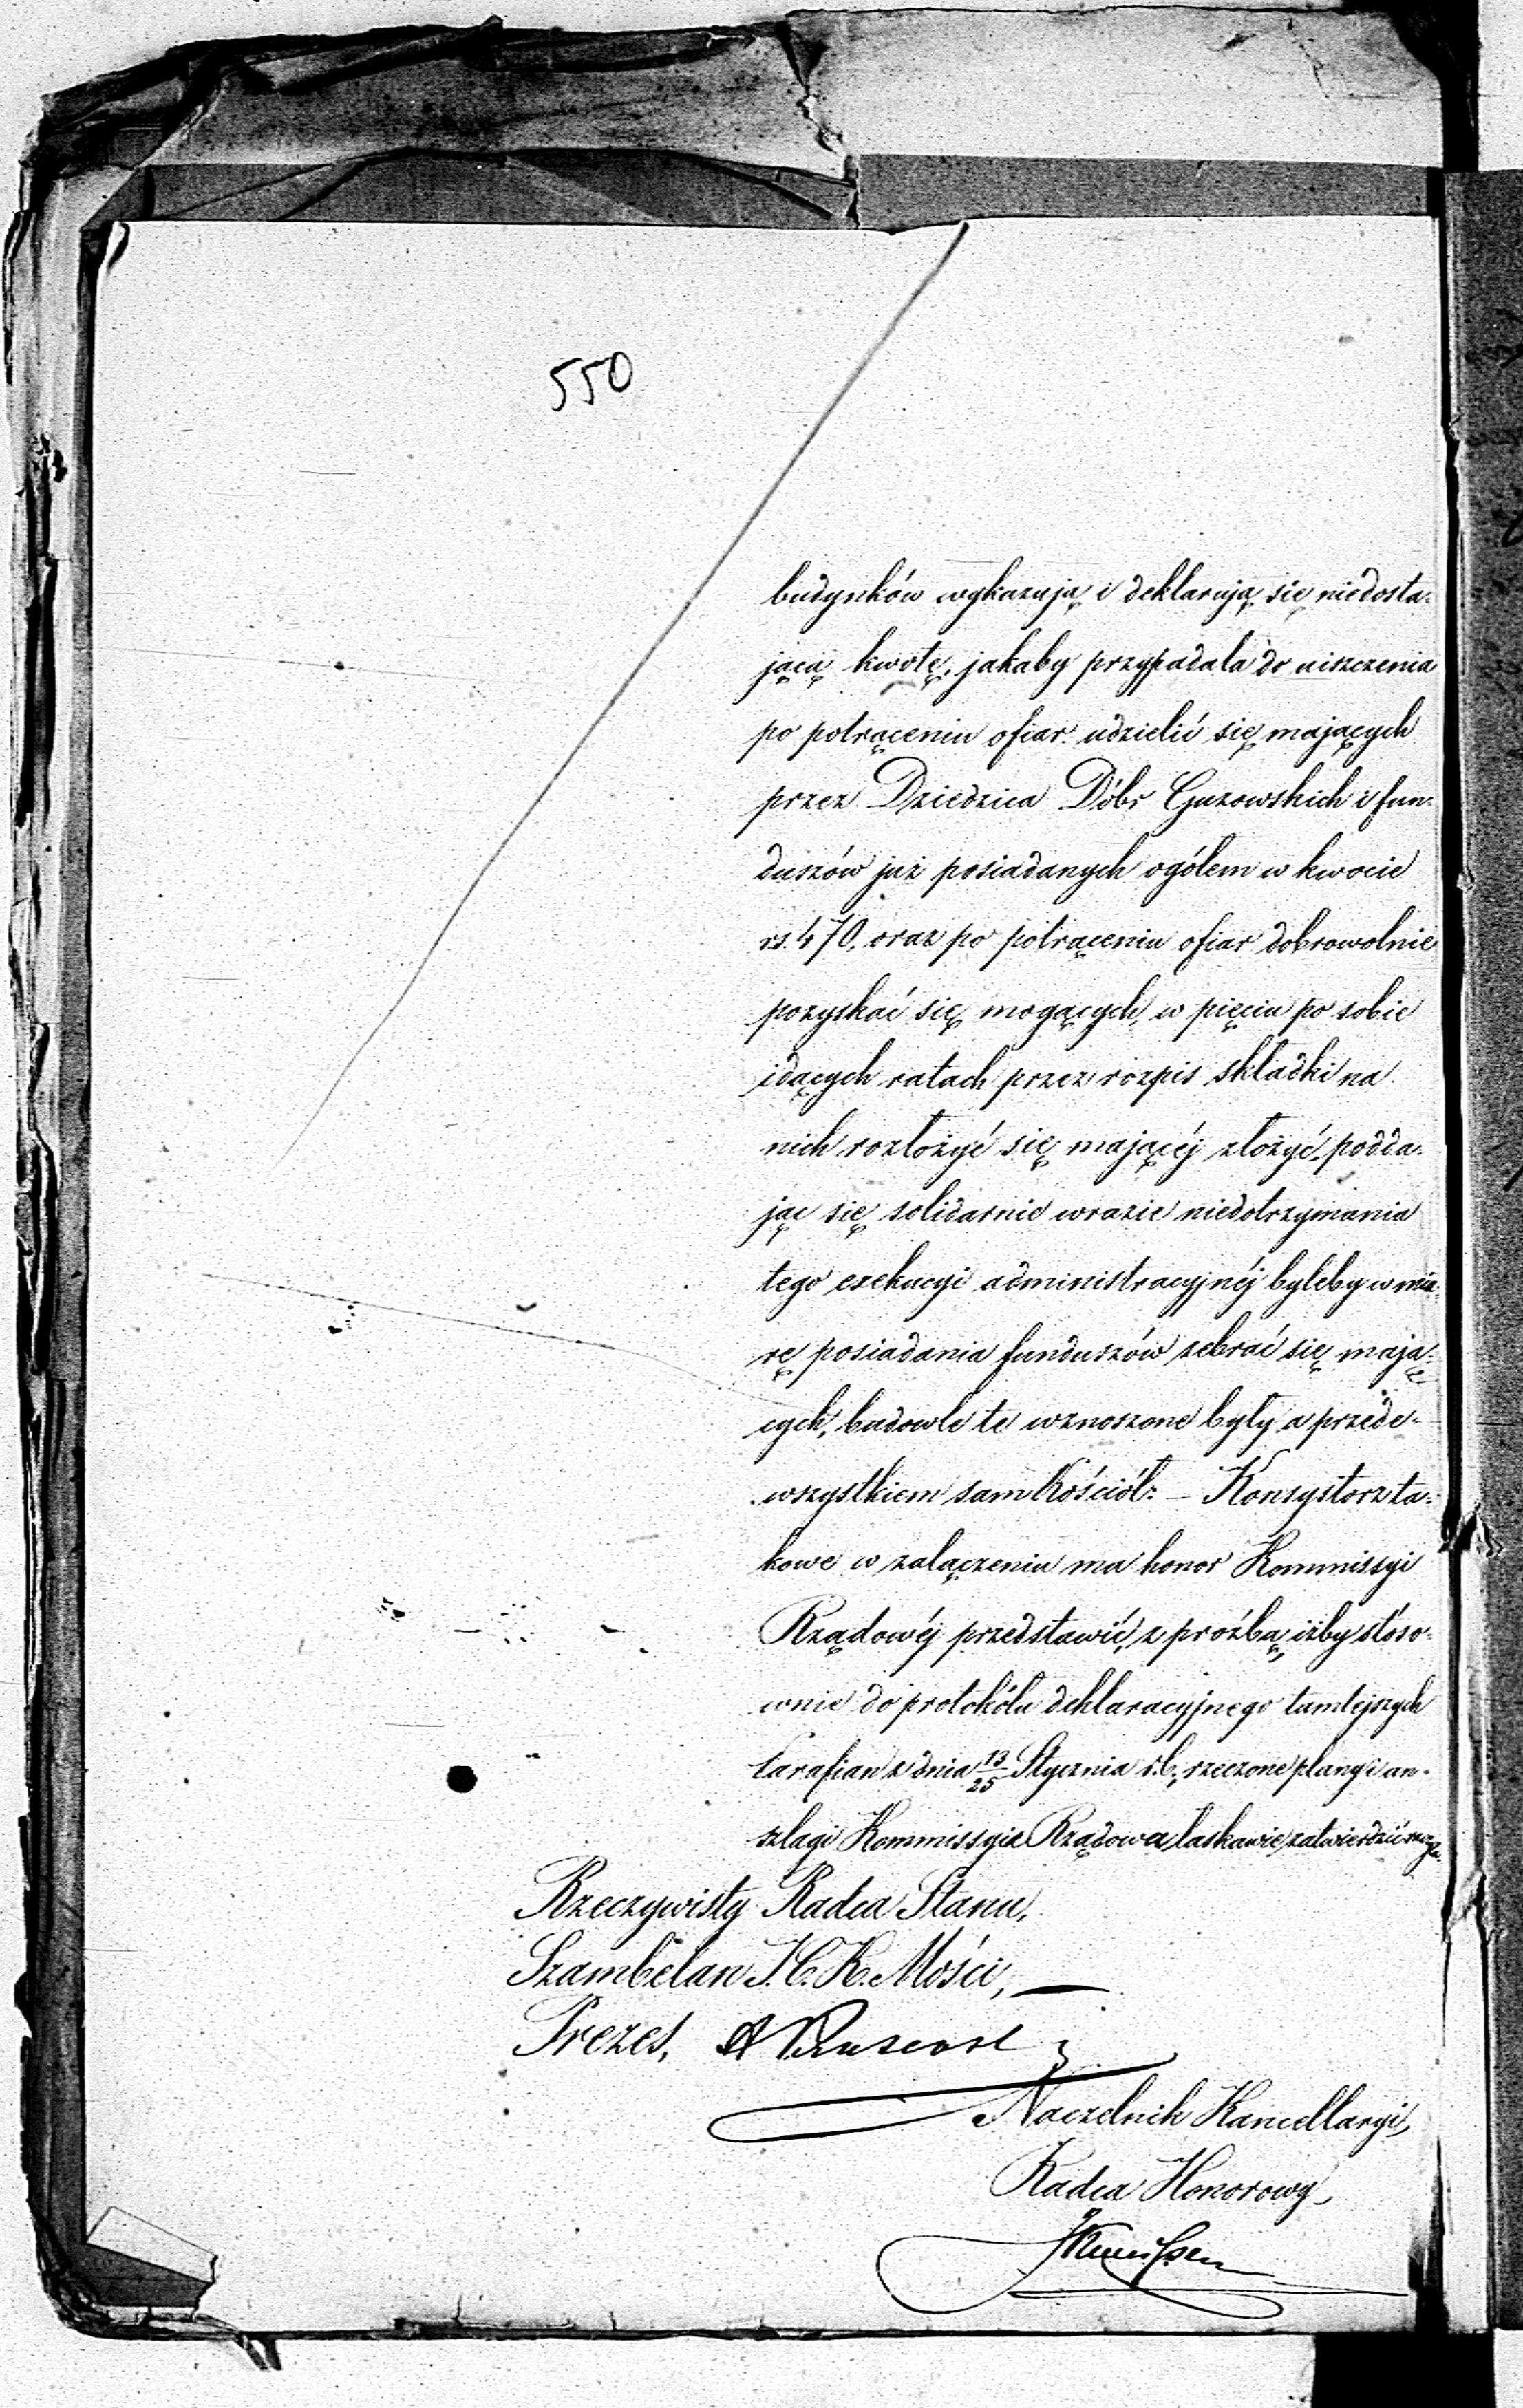 550
budynków wykazują i deklarują się niedosta-
jącą kwotę, jakaby przypadała do uiszczenia
po potrąceniu ofiar udzielić się mających
przez Dziedzica Dóbr Guzowskich i fun-
duszów już posiadanych ogółem w kwocie
rs. 470, oraz po potrąceniu ofiar dobrowolnie
pozyskać się mogących, w pięciu po sobie
idących ratach przez rozpis składki na
nich rozłożyć się mającéj złożyć, podda-
jąc się solidarnie wrazie niedotrzymania
tego exekucyi administracyjnéj byleby w mia-
rę posiadania funduszów zebrać się mają-
cych, budowle te wznoszone były a przede-
wszystkiem sam Kościół. – Konsystorz ta-
kowe w załączeniu ma honor Kommissyi
Rządowéj przedstawić, z prośbą, iżby stóso-
wnie do protokółu deklaracyjnego tamtejszych
Parafian z dnia 13/25 Stycznia r.b. rzeczone plany i an-
szlagi Kommissyia Rządowa łaskawie zatwierdzić
Rzeczywisty Radca Stanu,
Szambelan J. C. K. Mości,
Prezes,
Naczelnik Kancellaryi,
Radca Honorowy,